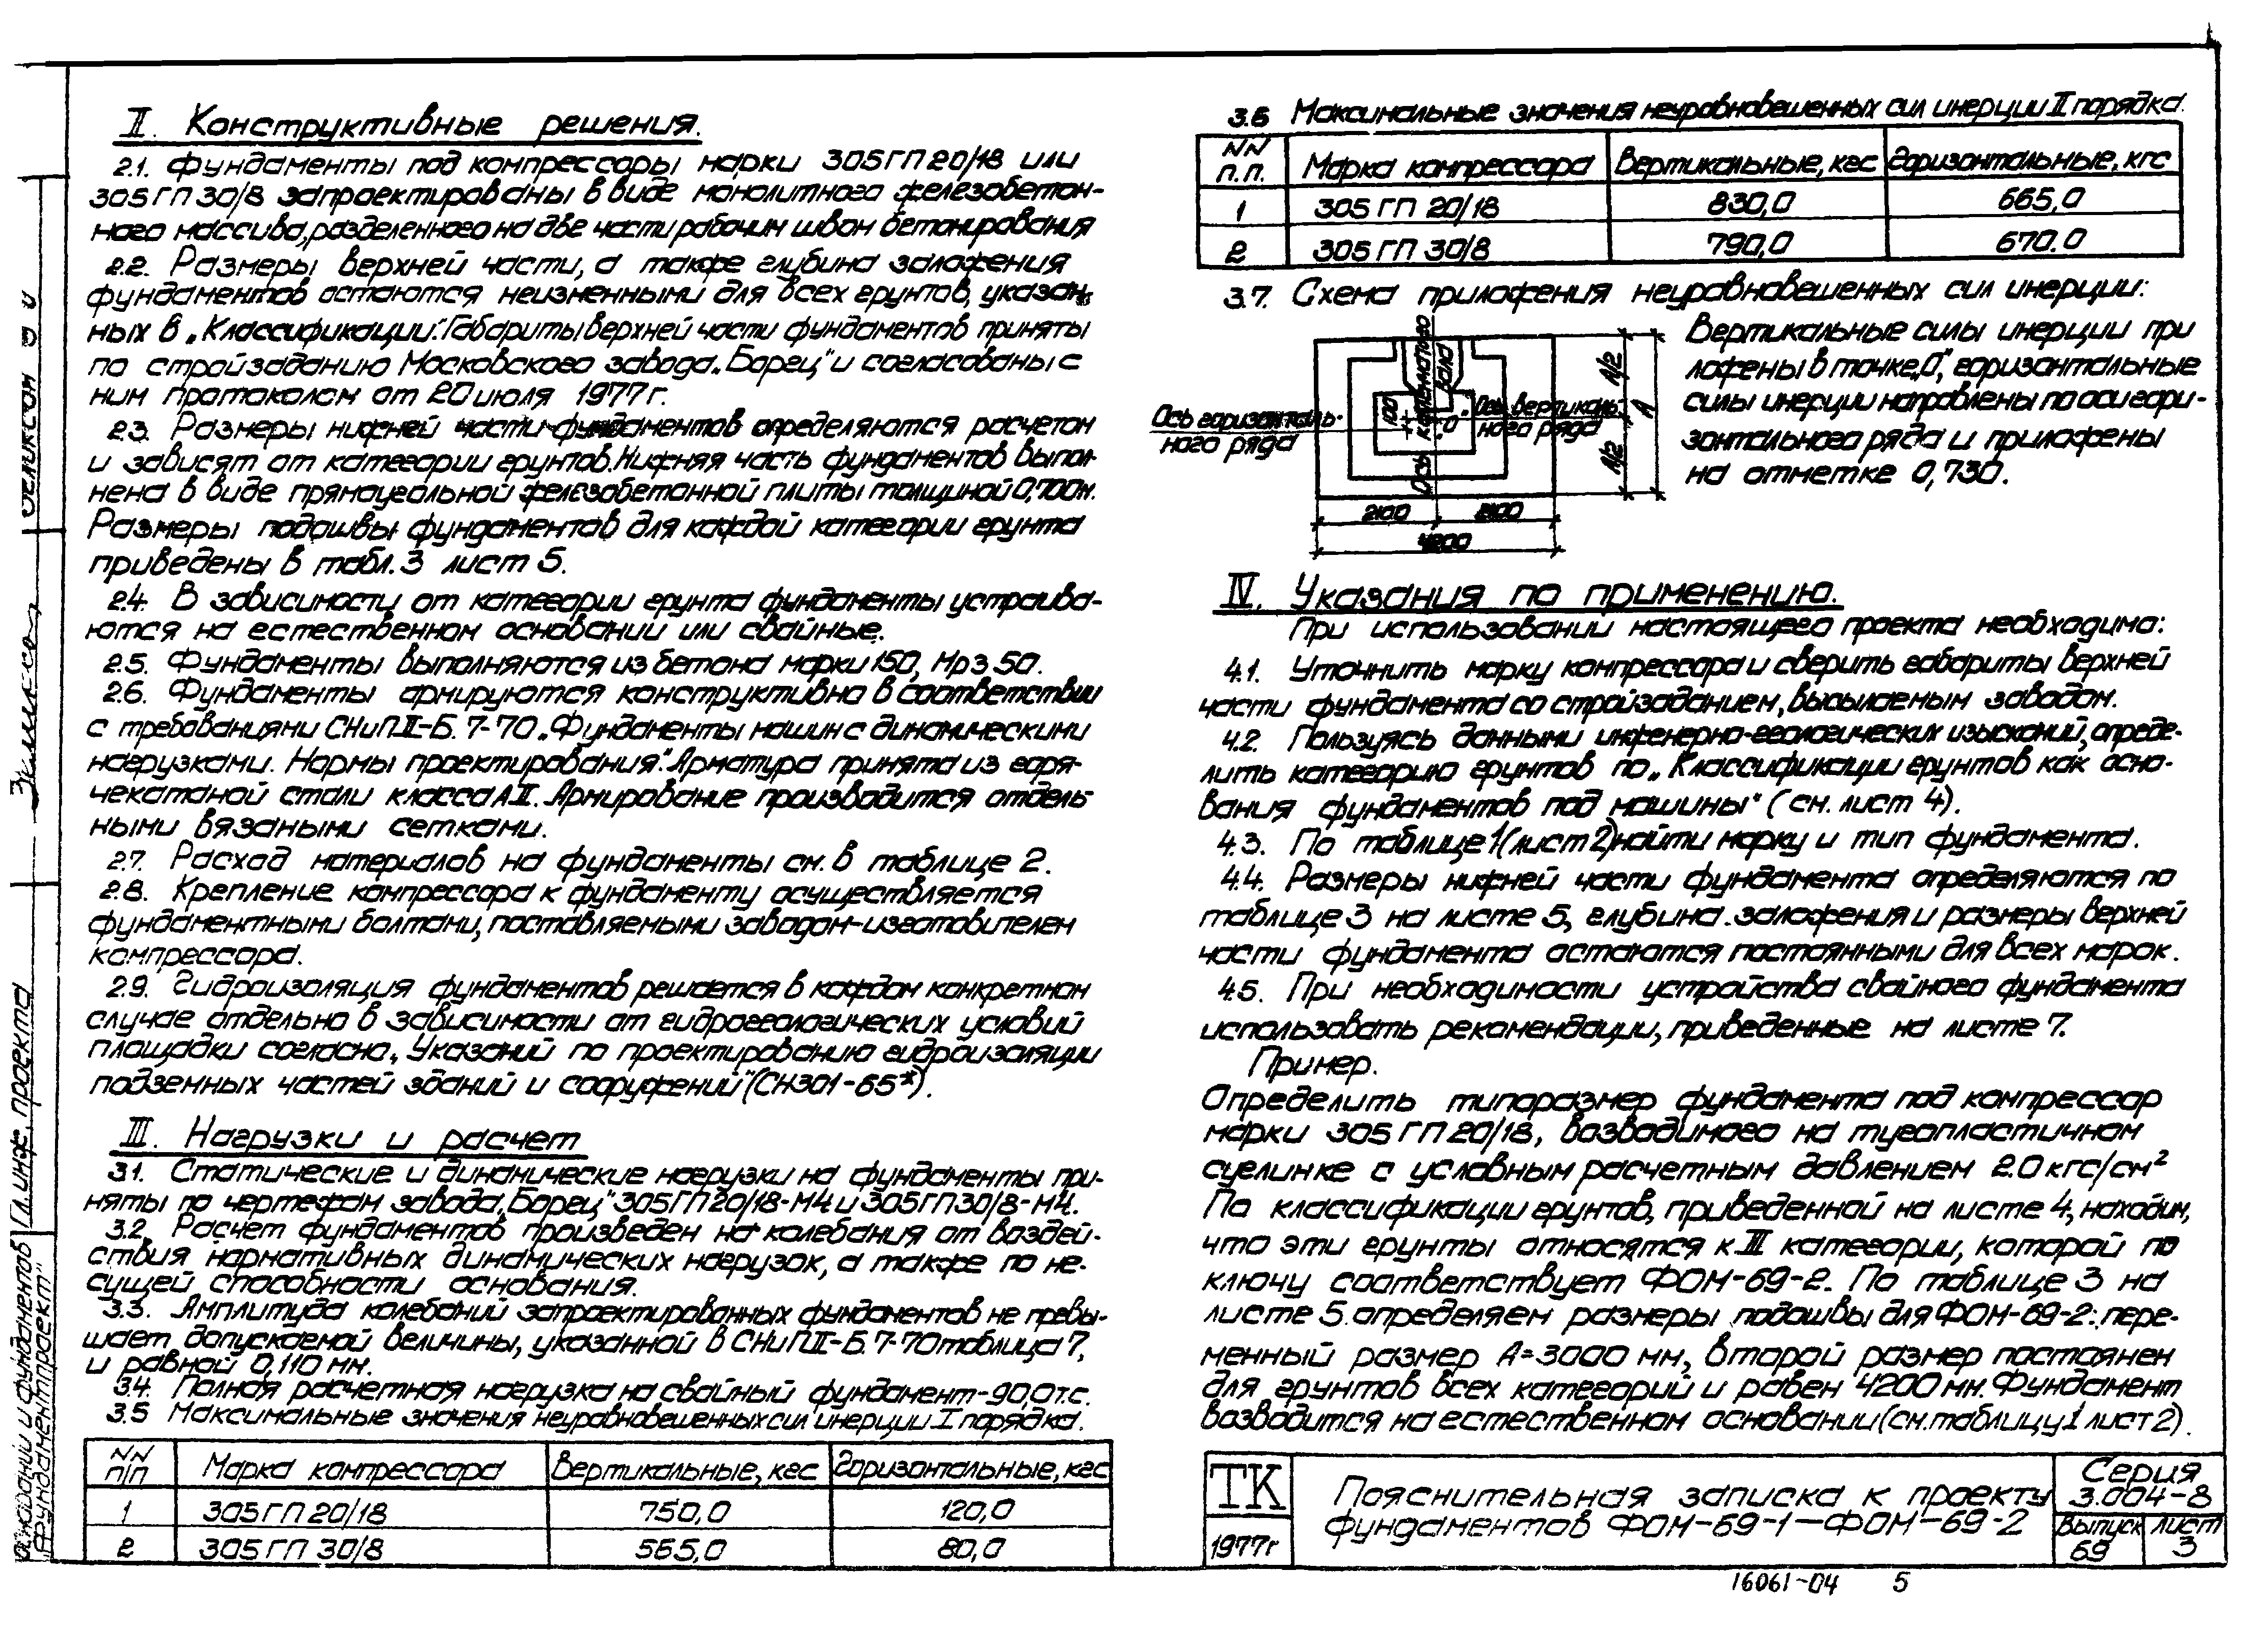 II. Конструктивные решения.
2.1. Фундаменты под компрессоры марки 305ГП20/18 или
305ГП30/8 запроектированы в виде монолитного железобетон-
ного массива, разделенного на две части рабочим швом бетонирования
2.2. Размеры верхней части, а также глубина заложения
фундаментов остаются неизменными для всех грунтов, указан-
ных в „Классификации". Габариты верхней части фундаментов приняты
по стройзаданию Московского завода „Борец" и согласованы с
ним протоколом от 20 июля 1977г.
2.3. Размеры нижней части фундаментов определяются расчетом
и зависят от категории грунтов. Нижняя часть фундаментов выпол-
нена в виде прямоугольной железобетонной плиты толщиной 0,700м.
Размеры подошвы фундаментов для каждой категории грунта
приведены в табл. 3 лист 5.
2.4. В зависимости от категории грунта фундаменты устраива-
ются на естественном основании или свайные.
2.5. Фундаменты выполняются из бетона марки 150, Мрз 50.
2.6. Фундаменты армируются конструктивно в соответствии
с требованиями СНиП II-Б. 7-70 „Фундаменты машин с динамическими
нагрузками. Нормы проектирования". Арматура принята из горя-
чекатаной стали класса АII. Армирование производится отдель-
ными вязаными сетками.
2.7. Расход материалов на фундаменты см. в таблице 2.
2.8. Крепление компрессора к фундаменту осуществляется
фундаментными болтами, поставляемыми заводом-изготовителем
компрессора.
2.9. Гидроизоляция фундаментов решается в каждом конкретном
случае отдельно в зависимости от гидрогеологических условий
площадки согласно „Указаний по проектированию гидроизоляции
подземных частей зданий и сооружений" (СН301-65*).
III. Нагрузки и расчет
3.1. Статические и динамические нагрузки на фундаменты при-
няты по чертежам завода „Борец" 305ГП20/18-М4 и 305ГП30/8-М4.
3.2. Расчет фундаментов произведен на колебания от воздей-
ствия нормативных динамических нагрузок, а также по не-
сущей способности основания.
3.3. Амплитуда колебаний запроектированных фундаментов не превы-
шает допускаемой величины, указанной в СНиП II-Б. 7-70 таблица 7,
и равной 0,110 мм.
3.4. Полная расчетная нагрузка на свайный фундамент-90,0т.с.
3.5 Максимальные значения неуравновешенных сил инерции I порядка.
NN п/п Марка компрессора Вертикальные, кгс Горизонтальные, кгс
1 305ГП 20/18 750,0 120,0
2 305ГП 30/8 565,0 80,0
3.6 Максимальные значения неуравновешенных сил инерции II порядка.
NN п.п. Марка компрессора Вертикальные, кгс Горизонтальные, кгс
1 305 ГП 20/18 830,0 665,0
2 305 ГП 30/8 790,0 670.0
3.7. Схема приложения неуравновешенных сил инерции:
Ось горизонталь-
ного ряда
Ось коленчатого
вала
Ось вертикаль-
ного ряда
„0"
100
А/2
А/2
А
2100 2100
4200
Вертикальные силы инерции при
ложены в точке „0", горизонтальные
силы инерции направлены по оси гори-
зонтального ряда и приложены
на отметке 0,730.
IV. Указания по применению.
При использовании настоящего проекта необходимо:
4.1. Уточнить марку компрессора и сверить габариты верхней
части фундамента со стройзаданием, высылаемым заводом.
4.2. Пользуясь данными инженерно-геологических изысканий, опреде-
лить категорию грунтов по „Классификации грунтов как осно-
вания фундаментов под машины" (см. лист 4).
4.3. По таблице 1 (лист 2) найти марку и тип фундамента.
4.4. Размеры нижней части фундамента определяются по
таблице 3 на листе 5, глубина заложения и размеры верхней
части фундамента остаются постоянными для всех марок.
4.5. При необходимости устройства свайного фундамента
использовать рекомендации, приведенные на листе 7.
Пример.
Определить типоразмер фундамента под компрессор
марки 305 ГП 20/18, возводимого на тугопластичном
суглинке с условным расчетным давлением 2.0 кгс/см²
По классификации грунтов, приведенной на листе 4, находим,
что эти грунты относятся к III категории, которой по
ключу соответствует ФОМ-69-2. По таблице 3 на
листе 5 определяем размеры подошвы для ФОМ-69-2: пере-
менный размер А=3000 мм, второй размер постоянен
для грунтов всех категорий и равен 4200мм. Фундамент
возводится на естественном основании (см. таблицу 1 лист 2).
ТК
1977г
Пояснительная записка к проекту
фундаментов ФОМ-69-1—ФОМ-69-2
Серия
3.004-8
Выпуск
69
лист
3
16061-04 5
Гл. инж. проекта
оснований и фундаментов
Фундаментпроект"